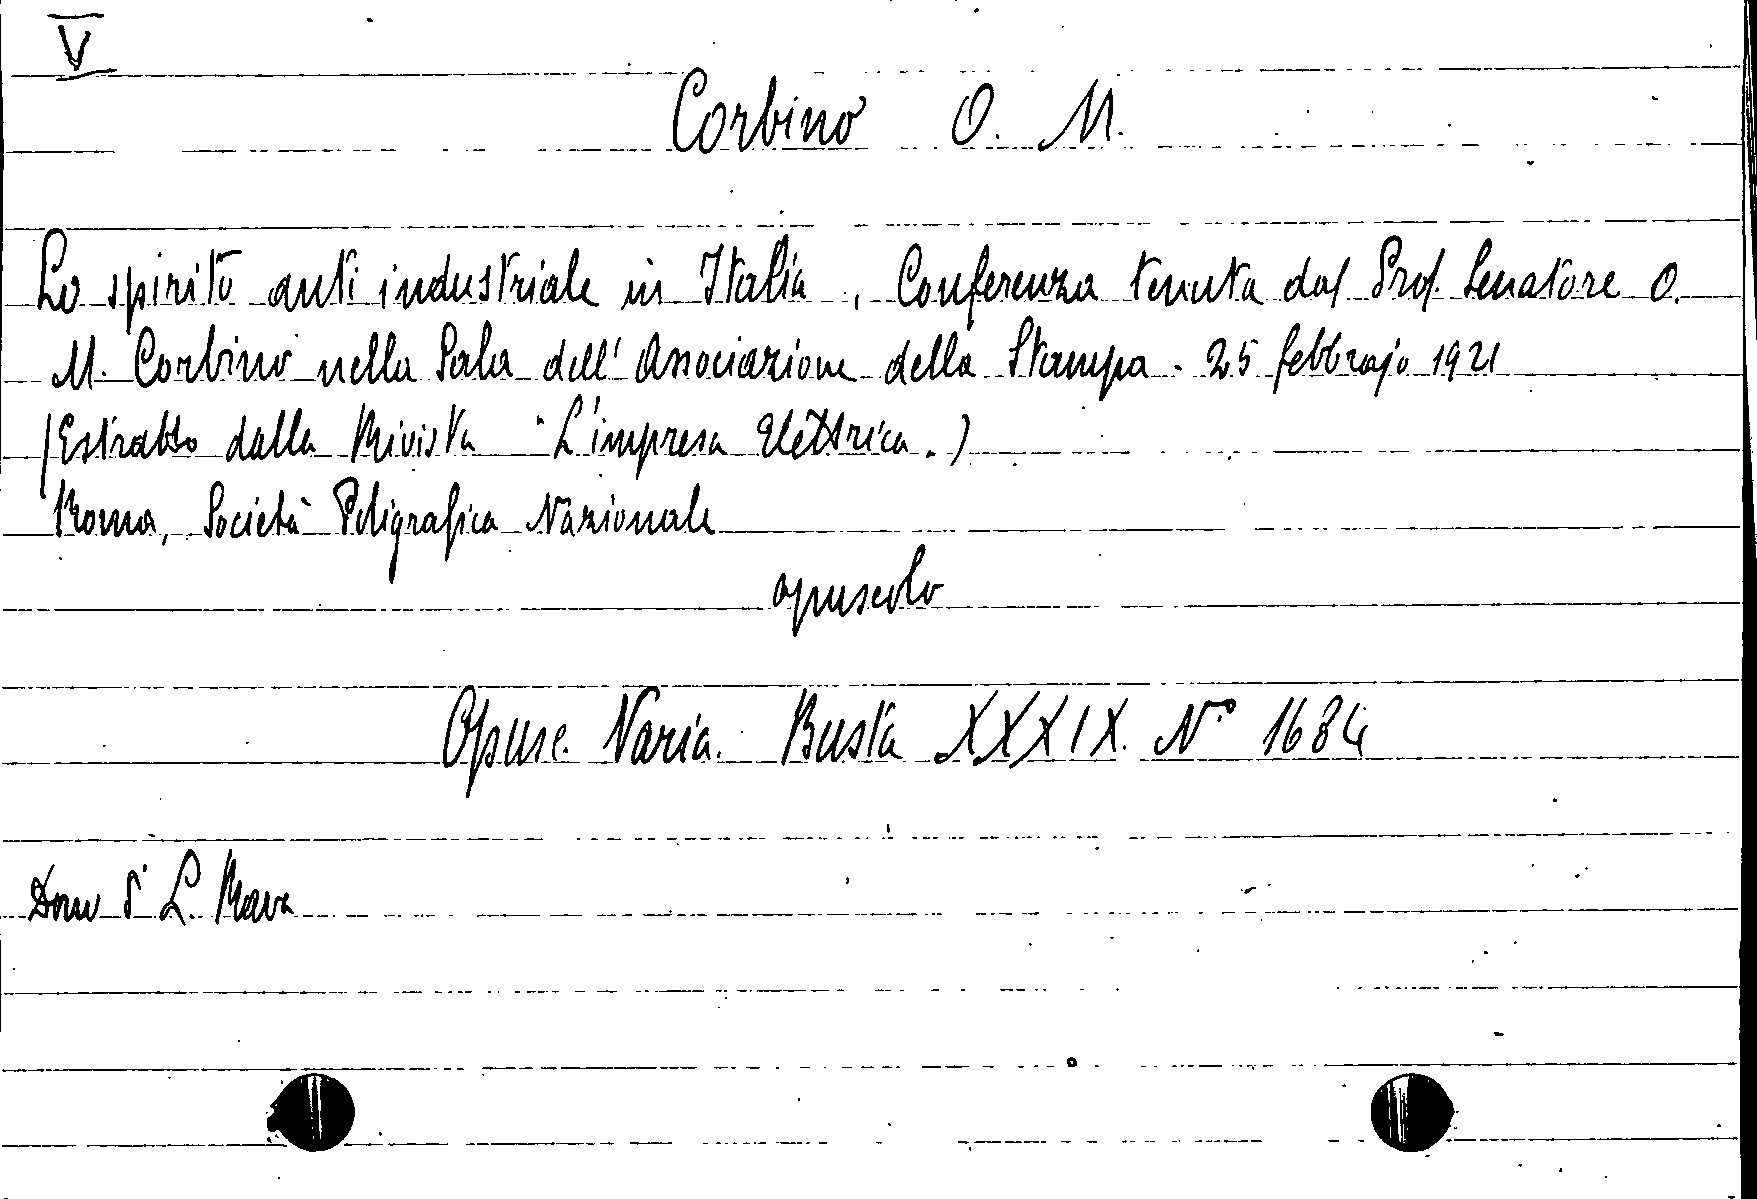 V
Corbino O. M.
Lo spirito anti industriale in Italia, Conferenza tenuta dal Prof. Senatore O.
M. Corbino nella Sala dell'Associazione della Stampa - 25 febbrajo 1921
(Estratto dalla Rivista "L'impresa Elettrica.)
Roma, Società Poligrafica Nazionale
opuscolo
Opusc. Varia. Busta XXXIX. N° 1684
Dono L. Rava